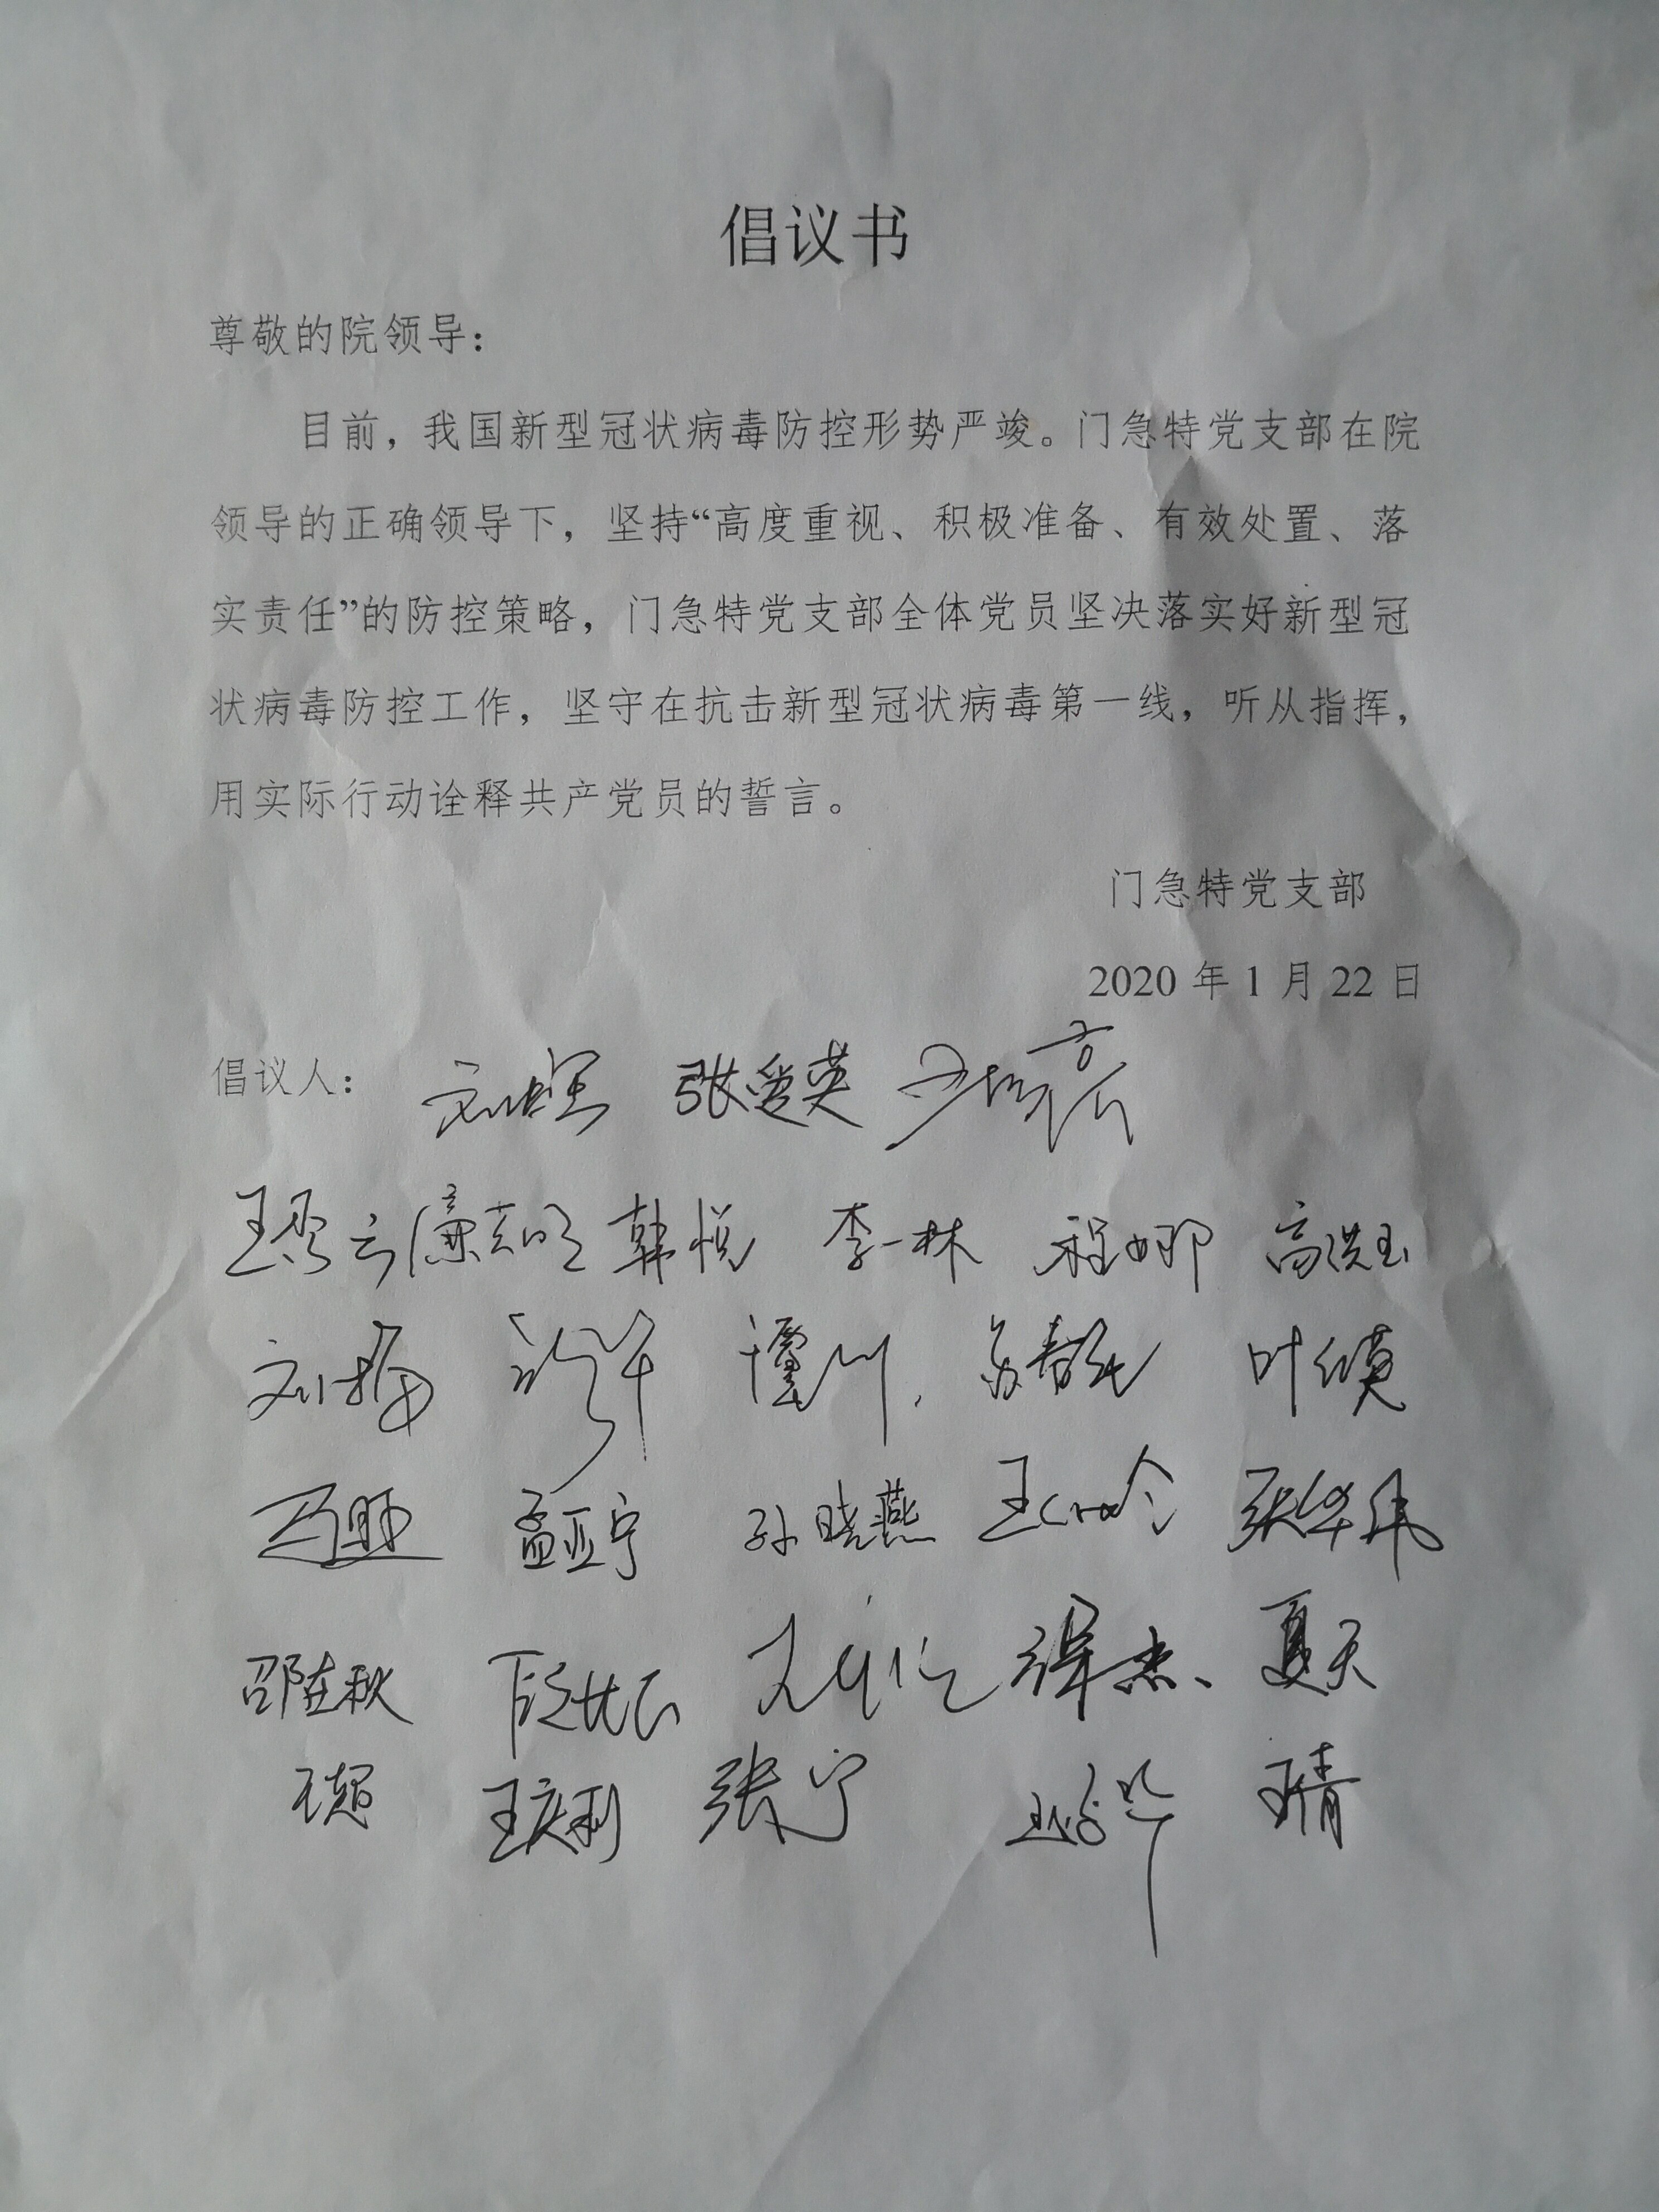 倡议书
尊敬的院领导：
目前，我国新型冠状病毒防控形势严竣。门急特党支部在院
领导的正确领导下，坚持“高度重视、积极准备、有效处置、落
实责任”的防控策略，门急特党支部全体党员坚决落实好新型冠
状病毒防控工作，坚守在抗击新型冠状病毒第一线，听从指挥，
用实际行动诠释共产党员的誓言。
门急特党支部
2020 年 1 月 22 日
倡议人： 张爱英
韩悦 李一林 程娜 高洪玉
孟亚宁 孙晓燕 张华伟
夏天
王庆利 张宁 王倩